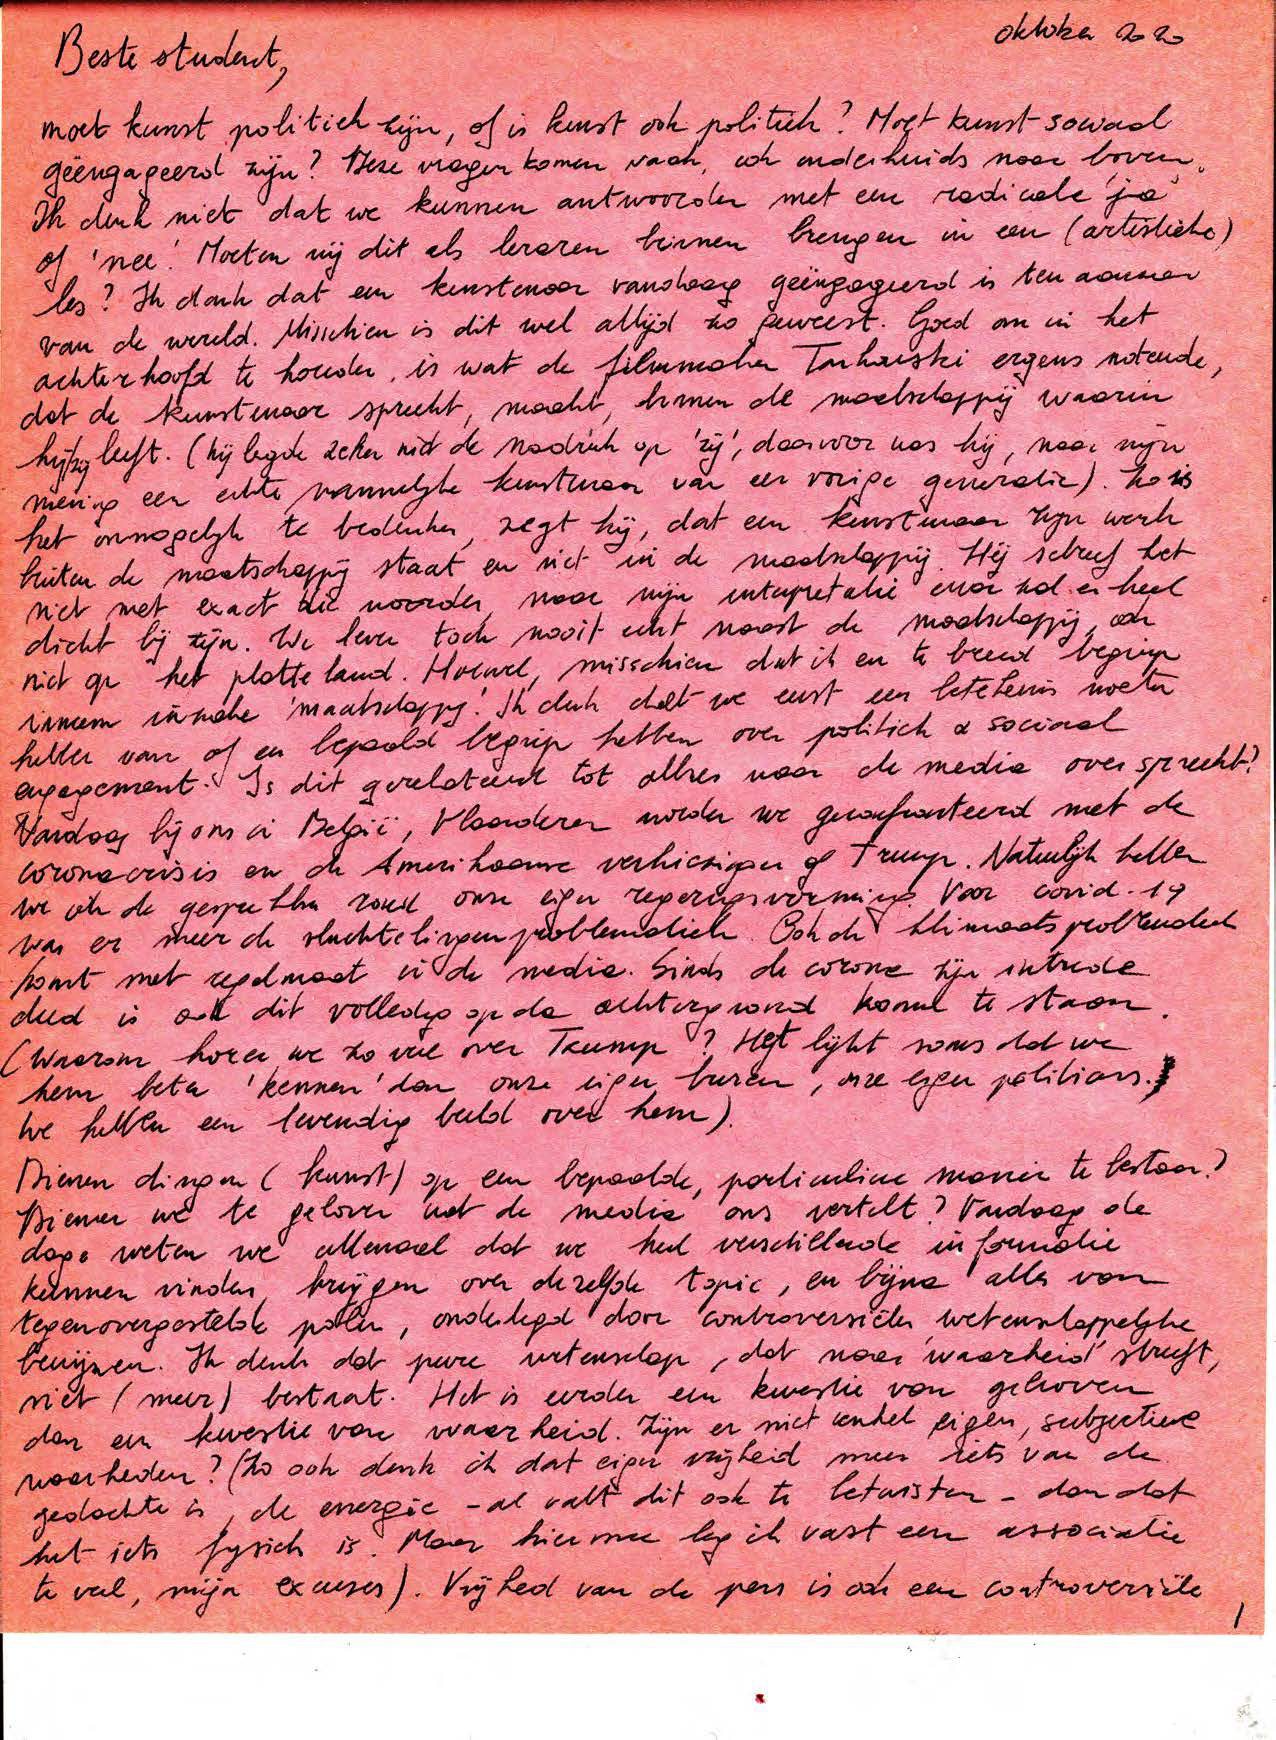 oktober 2020
Beste student,
moet kunst politiek zijn, of is kunst ook politiek? Moet kunst sociaal
geëngageerd zijn? Deze vragen komen vaak, ook onderhuids naar boven.
Ik denk niet dat we kunnen antwoorden met een radicale 'ja'
of 'nee'. Moeten wij dit als leraren binnen brengen in een (artistieke)
les? Ik denk dat een kunstenaar vandaag geëngageerd is ten aanzien
van de wereld. Misschien is dit wel altijd zo geweest. Goed om in het
achterhoofd te houden, is wat de filmmaker Tarkovski ergens noteerde,
dat de kunstenaar spreekt, maakt, binnen de maatschappij waarin
hij/zij leeft. (hij legde zeker niet de nadruk op 'zij', daarvoor was hij, naar mijn
mening een echte mannelijke kunstenaar van een vorige generatie). Zo is
het onmogelijk te bedenken, zegt hij, dat een kunstenaar zijn werk
buiten de maatschappij staat en niet in de maatschappij. Hij schreef het
niet met exact die woorden, maar mijn interpretatie ervan zal er heel
dicht bij zijn. We leven toch nooit echt naast de maatschappij, ook
niet op het platteland. Hoewel, misschien dat ik en te breed begrip
inneem inzake 'maatschappij'. Ik denk dat we eerst een betekenis moeten
hebben van of een bepaald begrip hebben over politiek & sociaal
engagement. Is dit gerelateerd tot alles waar de media over spreekt?
Vandaag bij ons in België, Vlaanderen worden we geconfronteerd met de
coronacrisis en de Amerikaanse verkiezingen of Trump. Natuurlijk hebben
we ook de gesprekken rond onze eigen regeringsvorming. Voor covid-19
was er meer de vluchtelingenproblematiek. Ook de klimaatsproblematiek
komt met regelmaat in de media. Sinds de corona zijn intrede
deed is ook dit volledig op de achtergrond komen te staan.
(Waarom horen we zo veel over Trump? Het lijkt soms dat we
hem beter 'kennen' dan onze eigen buren, onze eigen politici.
We hebben een levendig beeld over hem).
Dienen dingen (kunst) op een bepaalde, particuliere manier te bestaan?
Dienen we te geloven wat de media ons vertelt? Vandaag de
dag weten we allemaal dat we heel verschillende informatie
kunnen vinden, krijgen over dezelfde topic, en bijna alles van
tegenovergestelde polen, onderlegd door controversiële, wetenschappelijke
bewijzen. Ik denk dat pure wetenschap, dat naar 'waarheid' streeft,
niet (meer) bestaat. Het is eerder een kwestie van geloven
dan een kwestie van waarheid. Zijn er niet enkel eigen, subjectieve
waarheden? (Zo ook denk ik dat eigen vrijheid meer iets van de
gedachte is, de energie - al valt dit ook te betwisten - dan dat
het iets fysiek is. Maar hiermee leg ik vast een associatie
te veel, mijn excuses). Vrijheid van de pers is ook een controversiële
1